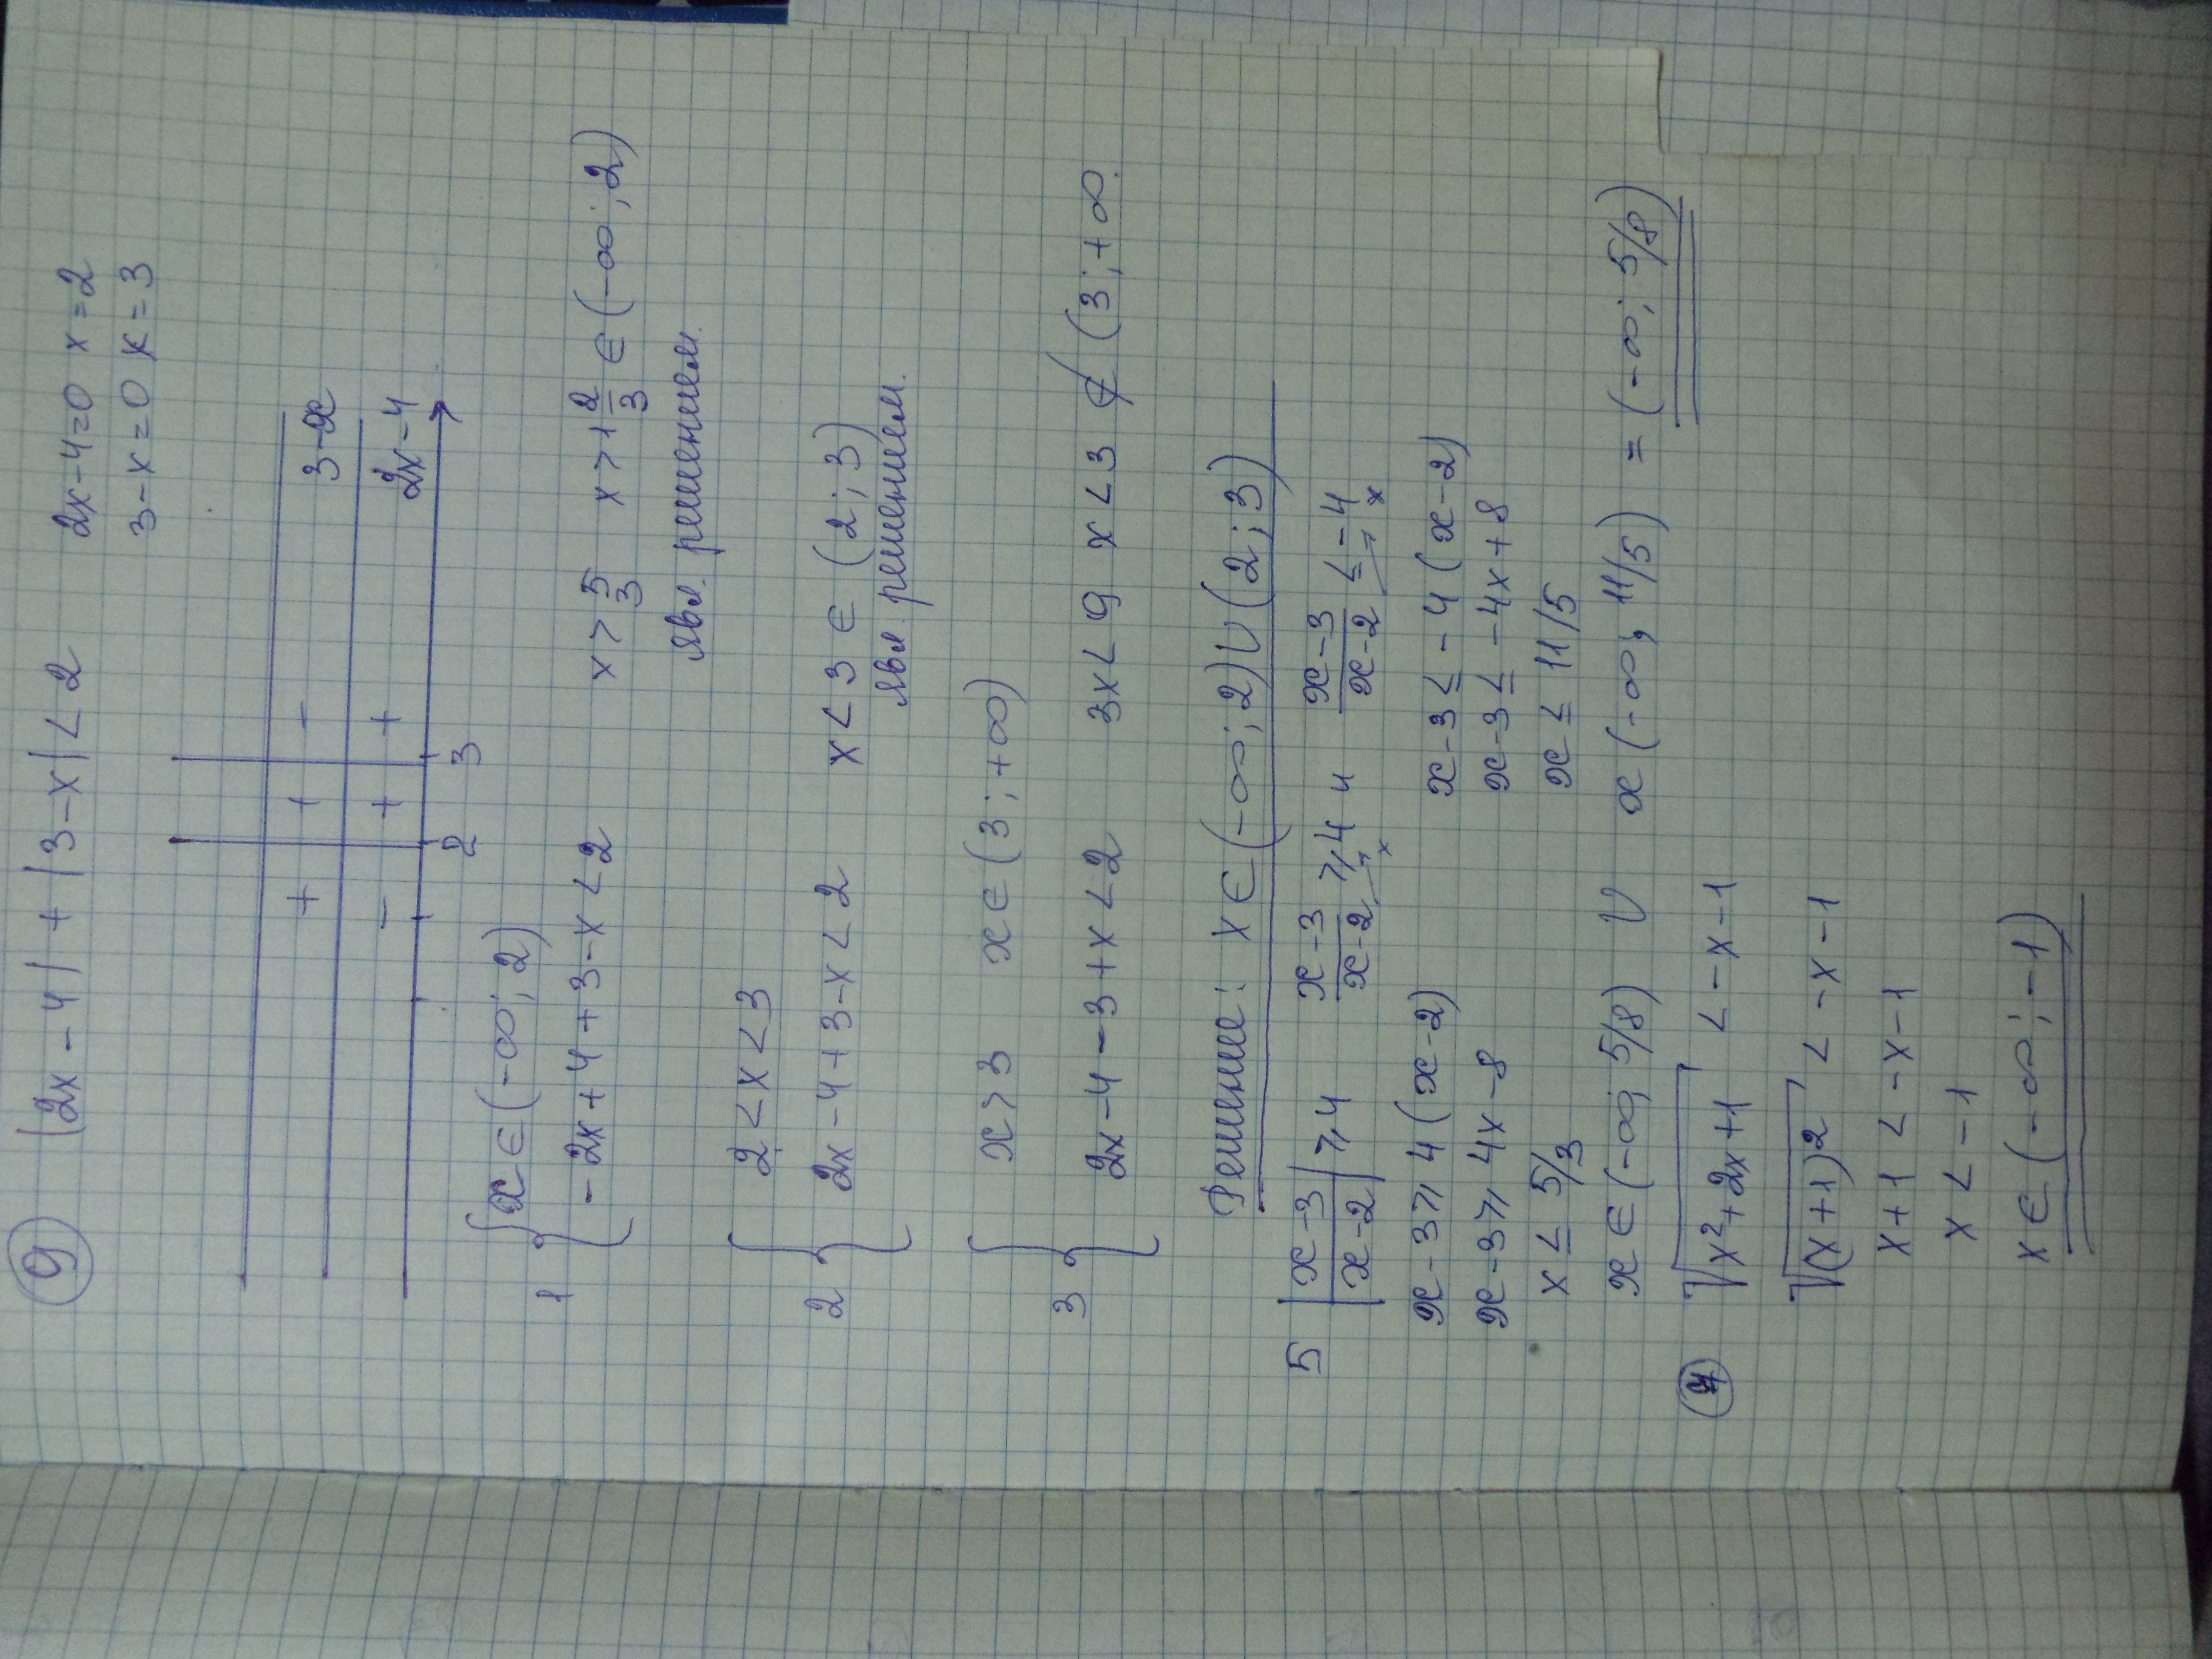 9 |2x-4| + |3-x| < 2 2x-4=0 x=2
3-x=0 x=3
+ + - 3-x
- + + 2x-4
2 3
1 { x ∈ (-∞; 2)
-2x+4+3-x<2 x > 5/3 x > 1 2/3 ∈ (-∞; 2)
явл. решением.
2 { 2 < x < 3
2x-4+3-x<2 x<3 ∈ (2; 3)
явл. решением.
3 { x>3 x ∈ (3; +∞)
2x-4-3+x<2 3x<9 x<3 ∉ (3; +∞.
Решение: x ∈ (-∞; 2) ∪ (2; 3)
5 |x-3 / x-2| ⩾ 4 x-3 / x-2 ⩾ 4 и x-3 / x-2 ≤ -4
x x
x-3 ⩾ 4(x-2) x-3 ≤ -4(x-2)
x-3 ⩾ 4x-8 x-3 ≤ -4x+8
x ≤ 5/3 x ≤ 11/5
x ∈ (-∞; 5/8) ∪ x (-∞; 11/5) = (-∞; 5/8)
√x²+2x+1 < -x-1
√(x+1)² < -x-1
x+1 < -x-1
x < -1
x ∈ (-∞; -1)